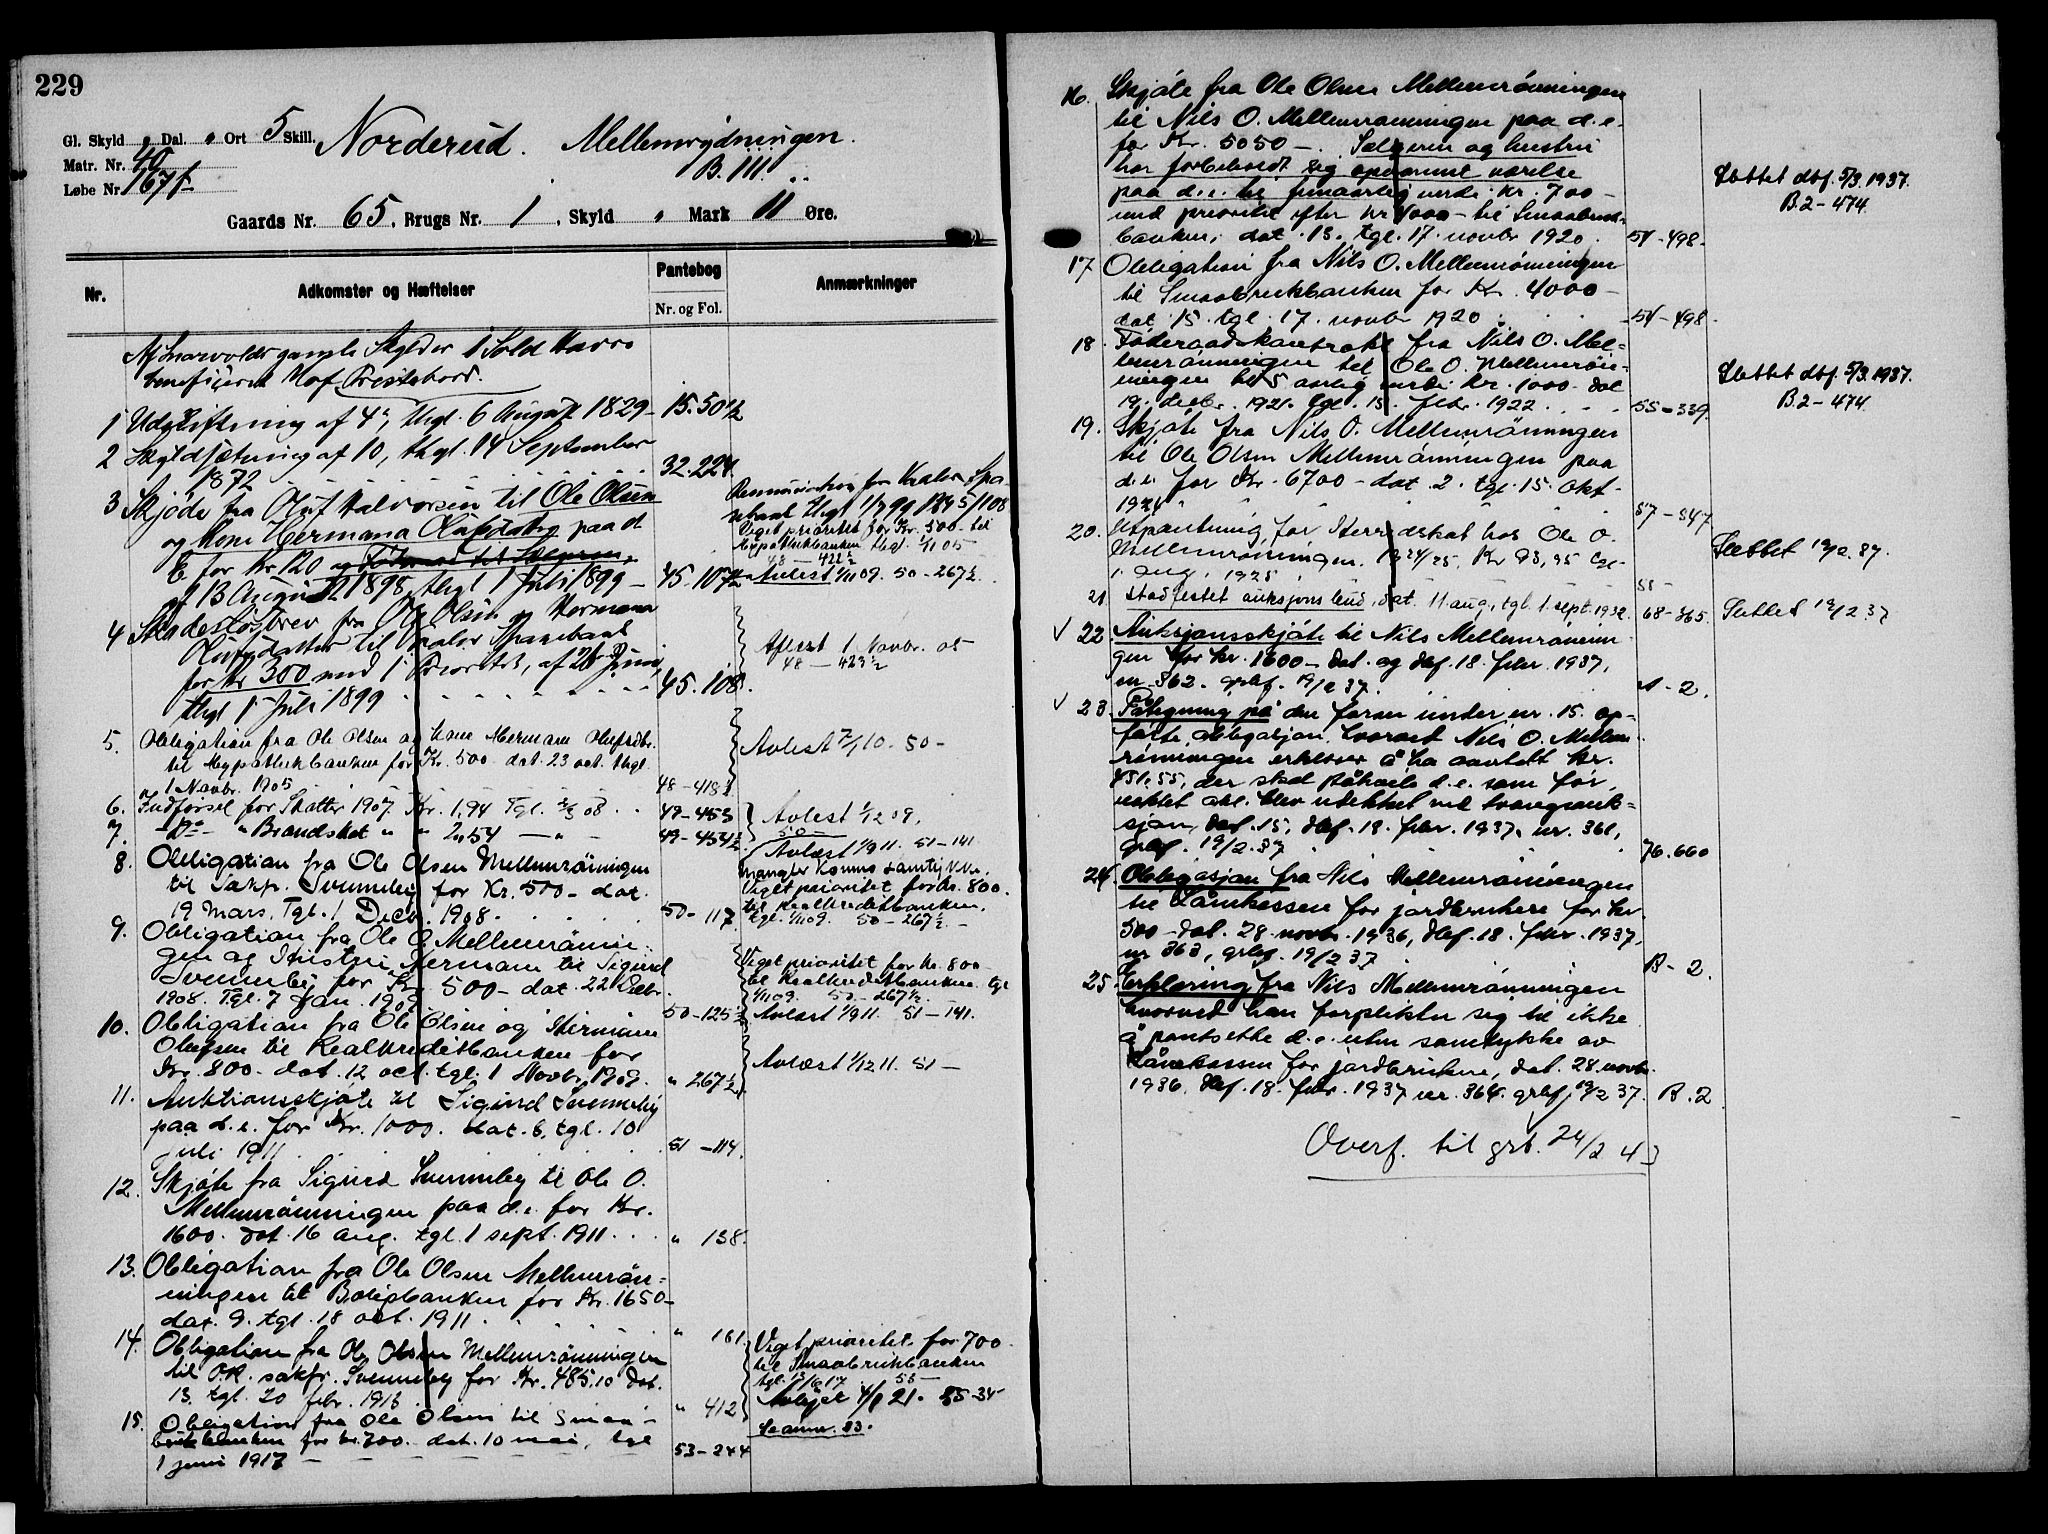 229
Gl. Skyld " Dal. " Ort 5 Skill. Norderud. Mellemrydningen.
Matr. Nr. 40 B. III.
Løbe Nr. 167f
Gaards Nr. 65, Brugs Nr. 1, Skyld " Mark 11 Øre.
Nr. Adkomster og Hæftelser Pantebog Anmærkninger
Nr. og Fol.
gamle Skylder 1 Sold Havre
beneficeret Prestebord.
1 Udskiftning af 4', thgl. 6 August 1829 - 15.50½
2 Skyldsætning af 10, thgl. 14 September
1872 32.224
3 Skjøde fra Oluf Halvorsen til Ole Olsen
og Kone Hermana Olufsdatter paa d
E for Kr 120 og
af 13 August 1898, thgl 1 Juli 1899 - 45.107
Viget prioritet for Kr. 500 - til
Hypothekbanken thgl. 1/11 05
48 - 422½
Avlest 1/11 09. 50 - 267½.
4 Skadesløsbrev fra Ole Olsen og Hermana
Olufsdatter til Kaler Sparebank
for Kr 300 med 1 Prioritet, af 26 Juni,
thgl 1 Juli 1899 45.108.
Aflest 1 Novbr. 05
48 - 423½
5. Obligation fra Ole Olsen og kone Hermana Olufsdtr.
til Hypothekbanken for Kr. 500. dat. 23 oct. thgl.
1 Novbr. 1905 48-418½
Avlest 7/1 10. 50 -
6. Indførsel for Skatter 1907. Kr. 1,94 Tgl. 2/3 08. 49-453
7. - Do - " Brandskat " " 2,54 - " - 49-454½
Avlest 1/12 09.
50 -
8. Obligation fra Ole Olsen Mellemrönningen
til Sakfr. Svenneby for Kr. 500 - dat.
19 Mars. Tgl. 1 Decbr. 1908. 50-117
Avlæst 1/9 11. 51-141
mangler Konens samtykke.
Viget prioritet for Kr. 800.
til Realkreditbanken.
tgl. 1/11 09. 50 - 267½. -
9. Obligation fra Ole O. Mellemrönnin-
gen og Hustru Hermana til Sigurd
Svenneby for Kr. 500 - dat. 22 Decbr.
1908. Tgl. 7 Jan. 1909 50-125½
Viget prioritet for Kr. 800 -
til Realkreditbanken. tgl
1/11 09. 50 - 267½.
Avlæst 1/9 11. 51-141.
10. Obligation fra Ole Olsen og Hermana
Olufsen til Realkreditbanken for
Kr. 800 - dat. 12 oct. tgl. 1 Novbr. 1909. " 267½
Avlæst 1/12 11. 51 -
11. Auktionsskjøte til Sigurd Svenneby
paa d.e. for Kr. 1000. dat. 6. tgl. 10
juli 1911 51-114.
12. Skjøte fra Sigurd Svenneby til Ole O.
Mellemrönningen paa d.e. for Kr.
1600. dat. 16 aug. tgl. 1 sept. 1911. " 138.
13. Obligation fra Ole Olsen Mellemrön-
ningen til Boligbanken for Kr. 1650 -
dat. 9. tgl. 18 oct. 1911 " 161.
14. Obligation fra Ole Olsen Mellemrönningen
til O.R. sakfr. Svenneby for Kr. 485,10 dat.
13. tgl. 20 febr. 1913 " 412
Viget prioritet for 700
til Smaabrukbanken
53 -
15. Obligation fra Ole Olsen til Smaa-
brukbanken for kr. 700. dat. 10 mai, tgl
1 juni 1917 - 53-244
Se anm. 23.
16. Skjøte fra Ole Olsen Mellemrönningen
til Nils O. Mellemrönningen paa d.e.
for Kr. 5050 -. Sælgeren og hustru
har forbeholdt sig opvarmet værelse
paa d.e. til femaarlig verdi kr. 700 -
med prioritet efter Kr 4000 - til Smaabruk-
banken; dat. 13. tgl. 17. novbr 1920. 54-498.
Slettet dbf. 5/3. 1937.
B. 2 - 474.
17 Obligation fra Nils O. Mellemrönningen
til Smaabrukbanken for Kr. 4000 -
dat. 15. tgl. 17. novbr 1920 54-498.
18. Föderaadskontrakt fra Nils O. Mel-
lemrönningen til Ole O. Mellemrön-
ningen til 5 aarlig verdi Kr. 1000. dat
19. decbr. 1921. tgl. 15. febr. 1922. 55-339.
Slettet dbf. 5/3. 1937.
B. 2 - 474.
19. Skjøte fra Nils O. Mellemrönningen
til Ole Olsen Mellemrönningen paa
d.e. for Kr. 6700 - dat. 2. tgl. 15. okt.
1924 57-547
20. Utpantning for Herredskat hos Ole O.
Mellemrönningen. 1924/25. Kr 93,95 tgl.
1. aug. 1925 58-
Slettet 19/2. 37.
21 Stadfestet auksjonsbud, dat. 11 aug, tgl. 1. sept. 1932. 68-365.
Slettet 19/2 37
√ 22. Auksjonsskjøte til Nils Mellemrönnin-
gen for kr. 1600 - dat. og dbf. 18. febr. 1937,
nr. 362. grbf. 19/2 37. A - 2.
√ 23. Påtegning på den foran under nr. 15. op-
førte obligasjon, hvorved Nils O. Mellem-
rönningen erklærer å ha avtalt kr.
451,55, der skal påhvile d.e. som før,
uaktet obl. blev utslettet ved tvangsauk-
sjon, dat. 15, dbf. 18. febr. 1937, nr. 361,
grbf. 19/2. 37 76.660
24. Obligasjon fra Nils Mellemrönningen
til Lånekassen for jordbrukere for kr.
500 - dat. 28. novbr. 1936, dbf. 18. febr. 1937,
nr 363, grbf. 19/2 37 B - 2.
25. Erklæring fra Nils Mellemrönningen
hvorved han forplikter sig til ikke
å pantsette d.e. uten samtykke av
Lånekassen for jordbrukere, dat. 28. novbr.
1936, dbf. 18. febr. 1937 nr. 364. grbf. 19/2 37. B. 2
Overf. til grb. 24/2 43